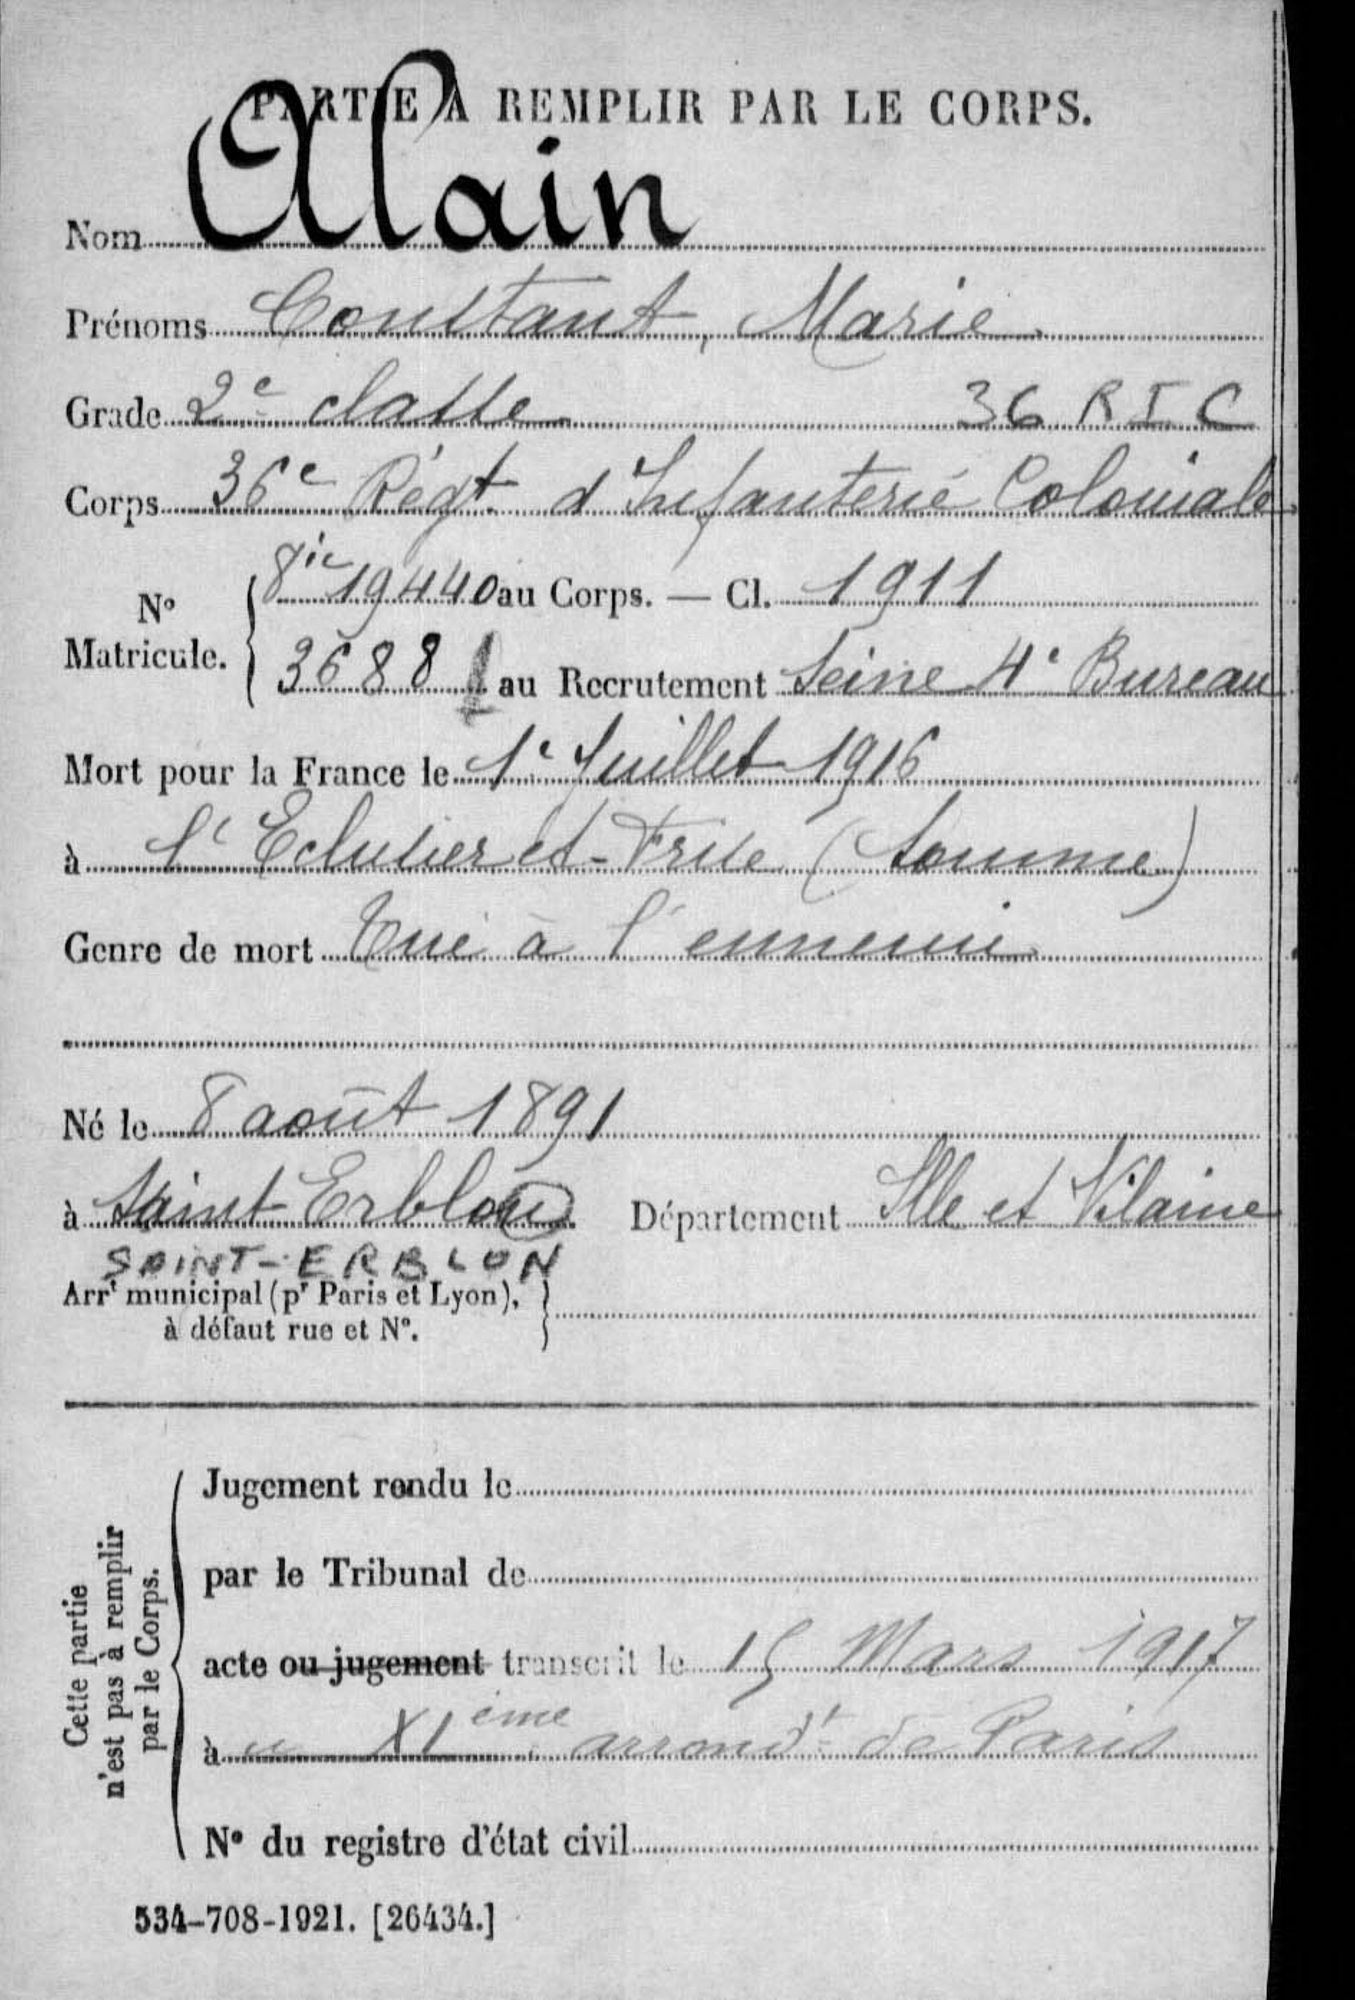 PARTIE A REMPLIR PAR LE CORPS.
Nom Alain
Prénoms Constant, Marie
Grade 2e classe 36 R I C
Corps 36e Régt. d'Infanterie Coloniale
No Matricule. 8ic 19440 au Corps. — Cl. 1911
3688 au Recrutement Seine 4e Bureau
Mort pour la France le 1e Juillet 1916
à l'Eclusier et-Frise (Somme)
Genre de mort Tué à l'ennemi
Né le 8 août 1891
à Saint Erblon Département Ille et Vilaine
SAINT-ERBLON
Arrt municipal (pr Paris et Lyon),
à défaut rue et No.
Cette partie
n'est pas à remplir
par le Corps.
Jugement rendu le
par le Tribunal de
acte ou jugement transcrit le 15 Mars 1917
à XIème arrondt de Paris
No du registre d'état civil
534-708-1921. [26434.]